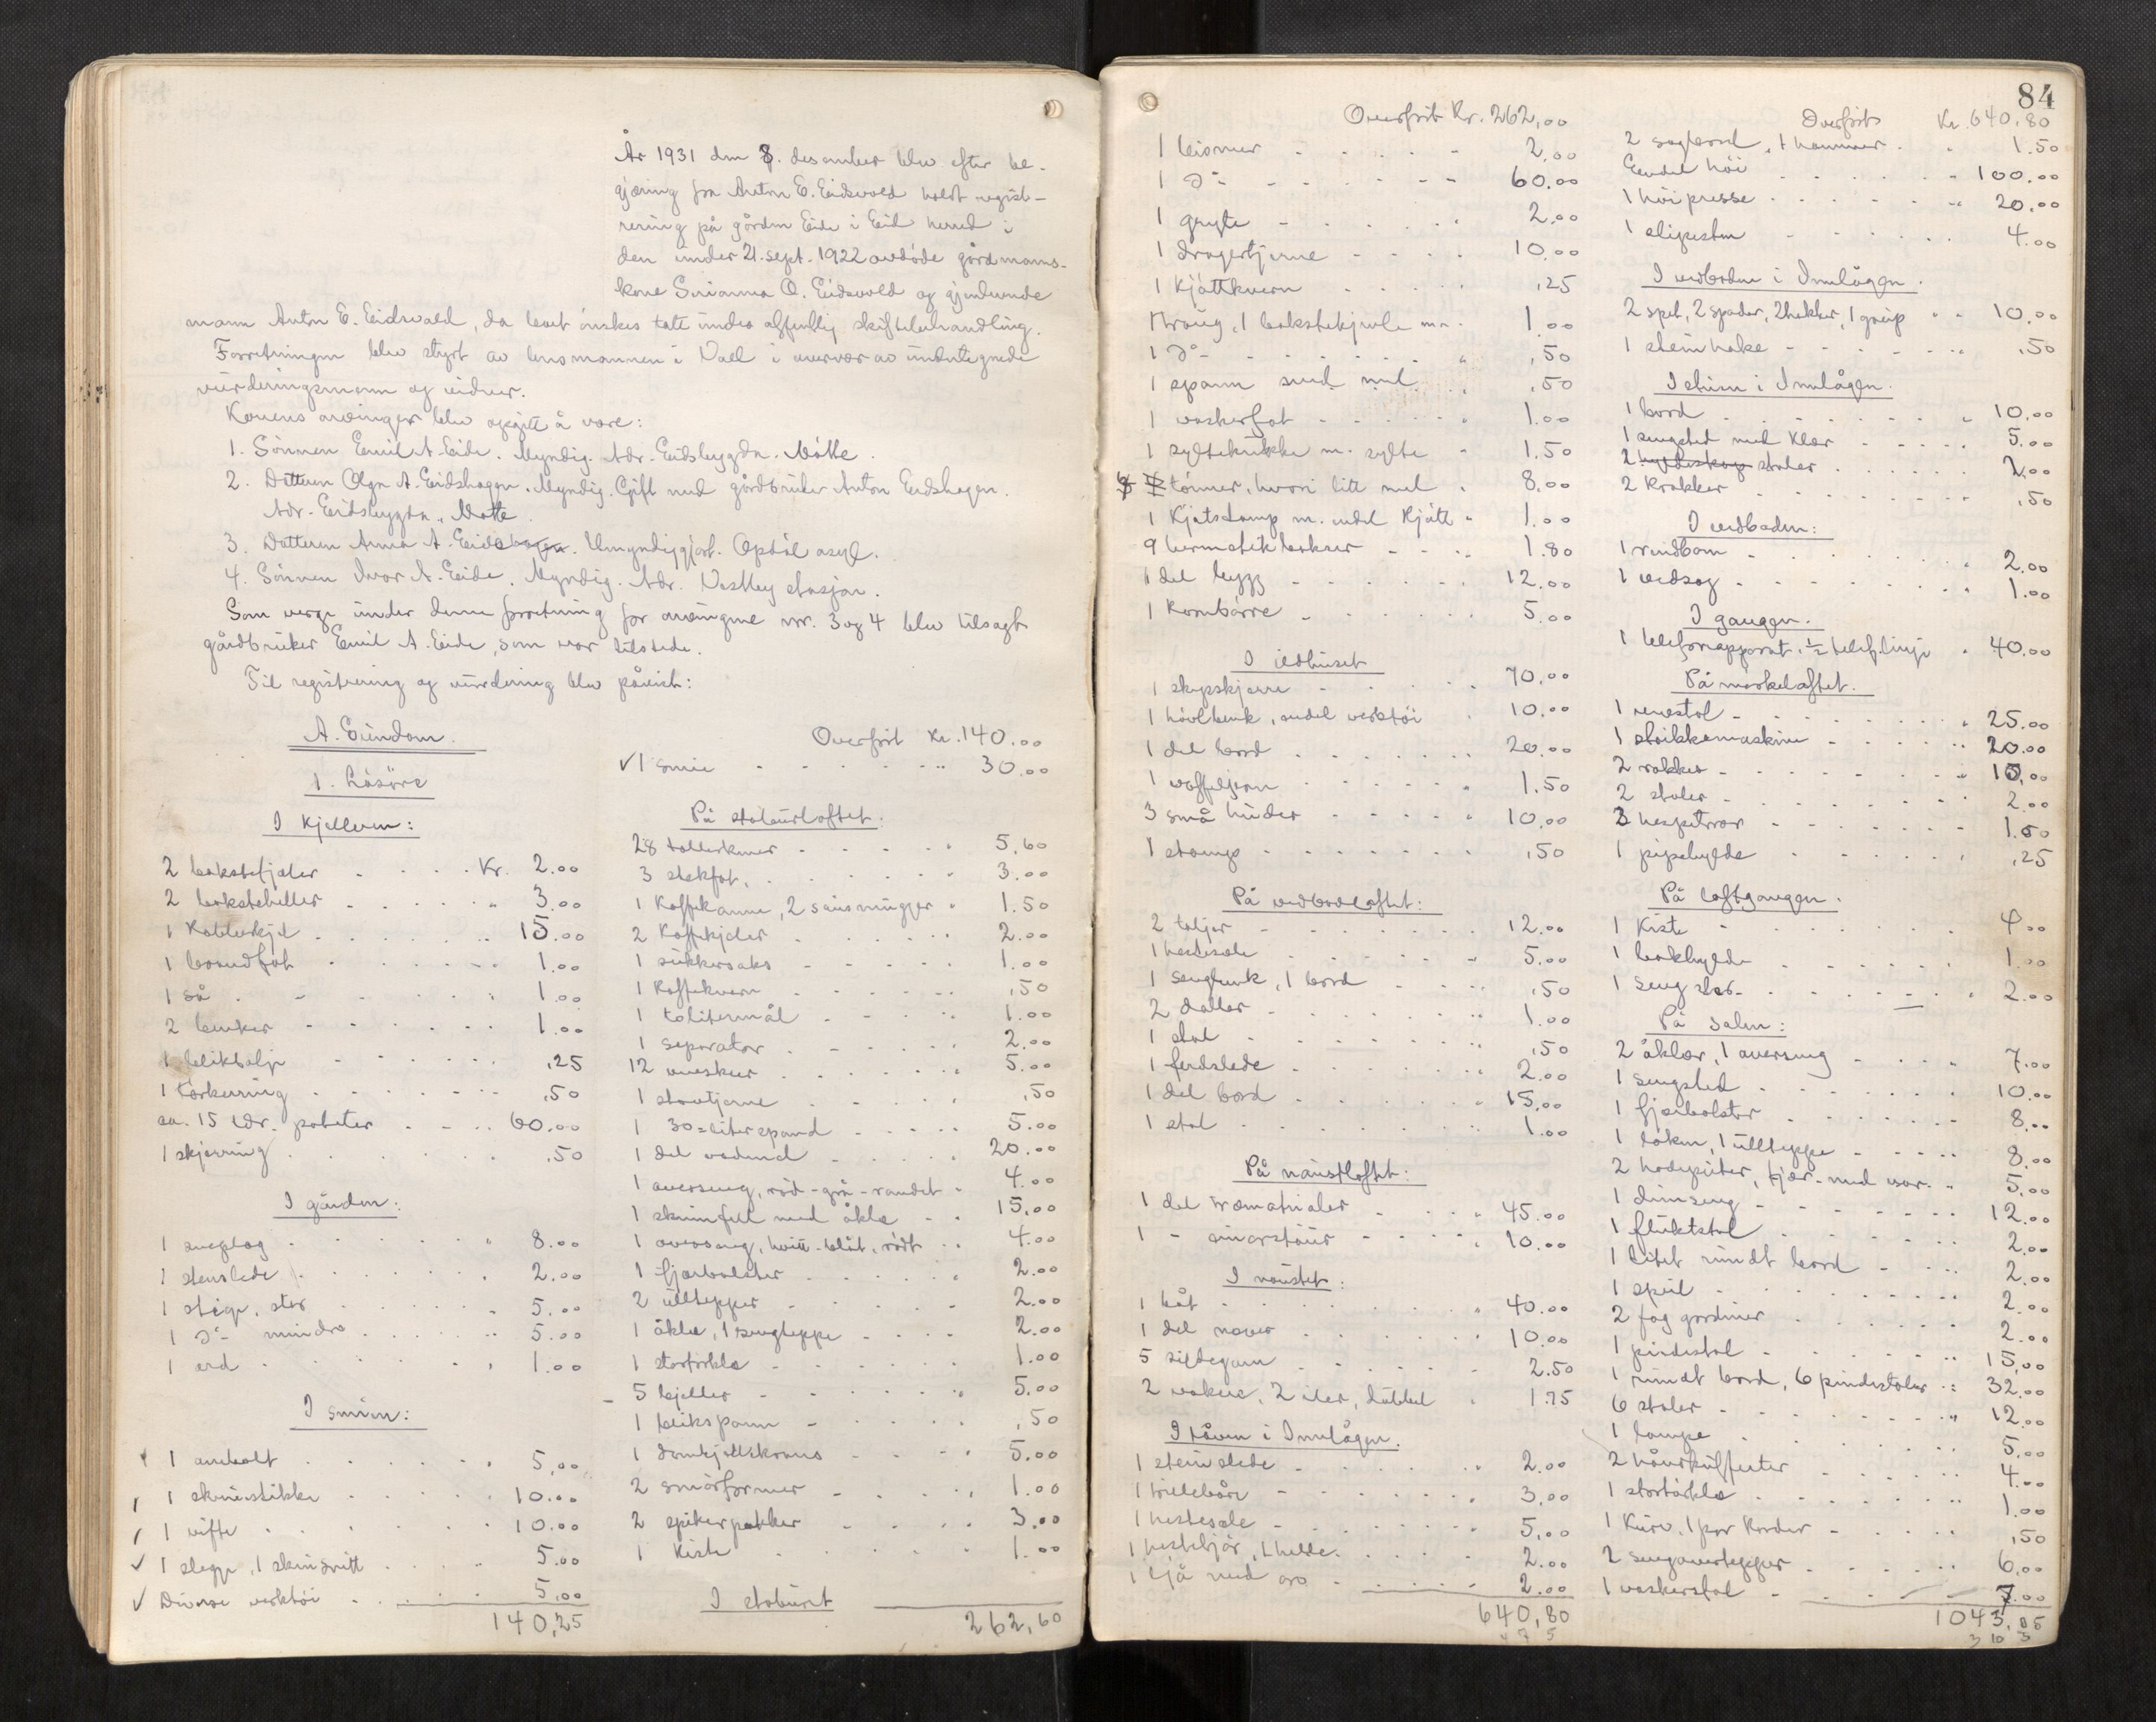 År 1931 den 8. desember blev efter be-
gjæring fra Anton E. Eidsvold holdt regist-
rering på gården Eide i Eid herred i
den under 21. sept. 1922 avdøde gårdmanns-
kone Serianna O. Eidsvold og gjenlevende
mann Anton E. Eidsvold, da boet ønskes tatt under offentlig skiftebehandling.
Forretningen blev styrt av lensmannen i Voll i overvær av undertegnede
vurderingsmenn og vidner.
Konens arvinger blev opgitt å være:
1. Sønnen Emil A. Eide. Myndig. Adr. Eidsbygda. Møtte.
2. Datteren Olga A. Eidshagen. Myndig. Gift med gårdbruker Anton Eidshagen.
Adr. Eidsbygda. Møtte.
3. Datteren Anna A. Eide. Umyndiggjort. Opdøl asyl.
4. Sønnen Ivar A. Eide. Myndig. Adr. Vestby stasjon.
Som verge under denne forretning for arvingene nr. 3 og 4 blev tilsagt
gårdbruker Emil A. Eide, som var tilstede.
Til registrering og vurdering blev påvist:
A. Eiendom.
1. Løsøre
I kjelleren:
2 bakstefjøler Kr. 2.00
2 baksteheller " 3.00
1 15.00
1 brendfat 1.00
1 så 1.00
2 benker 1.00
1 blikbalje ,25
1 tørkerring ,50
ca. 15 tdr. poteter 60.00
1 skjerring ,50
I gården:
1 sneplog 8.00
1 stenslede 2.00
1 stige, stor 5.00
1 do mindre 5.00
1 ard 1.00
I smien:
1 ambolt 5.00
1 skruestikke 10.00
1 vifte 10.00
1 slegge, 1 5.00
Diverse verktøi 5.00
140,25
Overført Kr. 140.00
1 smie 30.00
På stabursloftet.
28 tallerkener 5.60
3 stekfat 3.00
1 kaffekanne, 2 sausmugger 1.50
2 kaffekjeler 2.00
1 sukkersaks 1.00
1 kaffekvern ,50
1 tolitermål 1.00
1 separator 2.00
12 5.00
1 ,50
1 30=liter spand 5.00
1 del vadmel 20.00
1 overseng, rød-grå-randet 4.00
1 skinnfell med åkle 15.00
1 overseng, hvitt-blåt, rødt 4.00
1 fjærbolster 2.00
2 ulltepper 2.00
1 åkle, 1 sengteppe 2.00
1 stortørkle 1.00
5 bjeller 5.00
1 blikspann ,50
1 dombjellekrans 5.00
2 smørformer 1.00
2 spikerpakker 3.00
1 kiste 1.00
I staburet
262,60
84
Overført Kr. 262,00
1 bismer 2.00
1 do 60.00
1 gryte 2.00
1 10.00
1 kjøttkvern ,25
1 traug, 1 bakstekjevle m.. 1.00
1 do ,50
1 spann med mel ,50
1 vaskerfat 1.00
1 syltekrukke m. sylte 1.50
tønner, hvori litt mel 8.00
1 kjøtstamp m. endel kjøtt 1.00
9 hermetikbokser 1.80
1 del bygg 12.00
1 kornbørre 5.00
I ildhuset
1 skyskjerre 70.00
1 høvlbenk, endel verktøi 10.00
1 del bord 20.00
1 vaffeljern 1.50
3 små huder 10.00
1 stamp ,50
På vedbodloftet:
2 taljer 12.00
1 hestesele 5.00
1 sengbenk, 1 bord ,50
2 daller 1.00
1 stol ,50
1 ferdslede 2.00
1 del bord 15.00
1 stol 1.00
På naustloftet:
1 del træmatrialer 45.00
1 - 10.00
I naustet:
1 båt 40.00
1 del naver 10.00
5 sildegarn 2.50
2 vakes, 2 iler, dubbel 1.75
I låven i Innlågen.
1 steinslede 2.00
1 trillebåre 3.00
1 hestesele 5.00
1 hestekljør, 1 helle 2.00
1 ljå med orv 2.00
640,80
Overført Kr. 640,80
2 sagbord, 1 hammer 1.50
Endel høi 100.00
1 høipresse 20.00
1 slipesten 4.00
I vedboden i Innlågen.
2 spett, 2 spader, 2 hakker, 1 greip 10.00
1 steinhake ,50
I stuen i Innlågen.
1 bord 10.00
1 sengsted med klær 5.00
2 stoler 2.00
2 krakker ,50
I vedboden:
1 rundbom 2.00
1 vedsag 1.00
I gangen.
1 telefonapparat, 1/2 telef.linje 40.00
På mørkeloftet.
1 vevstol 25.00
1 strikkemaskin 20.00
2 rokker 10.00
2 stoler 2.00
3 hespetrær 1.50
1 pipehylde ,25
På loftgangen.
1 kiste 4.00
1 bokhylde 1.00
1 seng 2.00
På salen:
2 åklær, 1 overseng 7.00
1 sengsted 10.00
1 fjærbolster 8.00
1 laken, 1 ullteppe 8.00
2 hodeputer, fjær- med var 5.00
1 dunseng 12.00
1 fluktstol 2.00
1 litet rundt bord 2.00
1 speil 2.00
2 fag gardiner 2.00
1 pindestol 15.00
1 rundt bord, 6 pindestoler 32.00
6 stoler 12.00
1 lampe 5.00
2 håndkufferter 4.00
1 stortørkle 1.00
1 kurv, 1 par karder ,50
2 sengovertepper 6.00
1 vaskerstol 7.00
1043,85